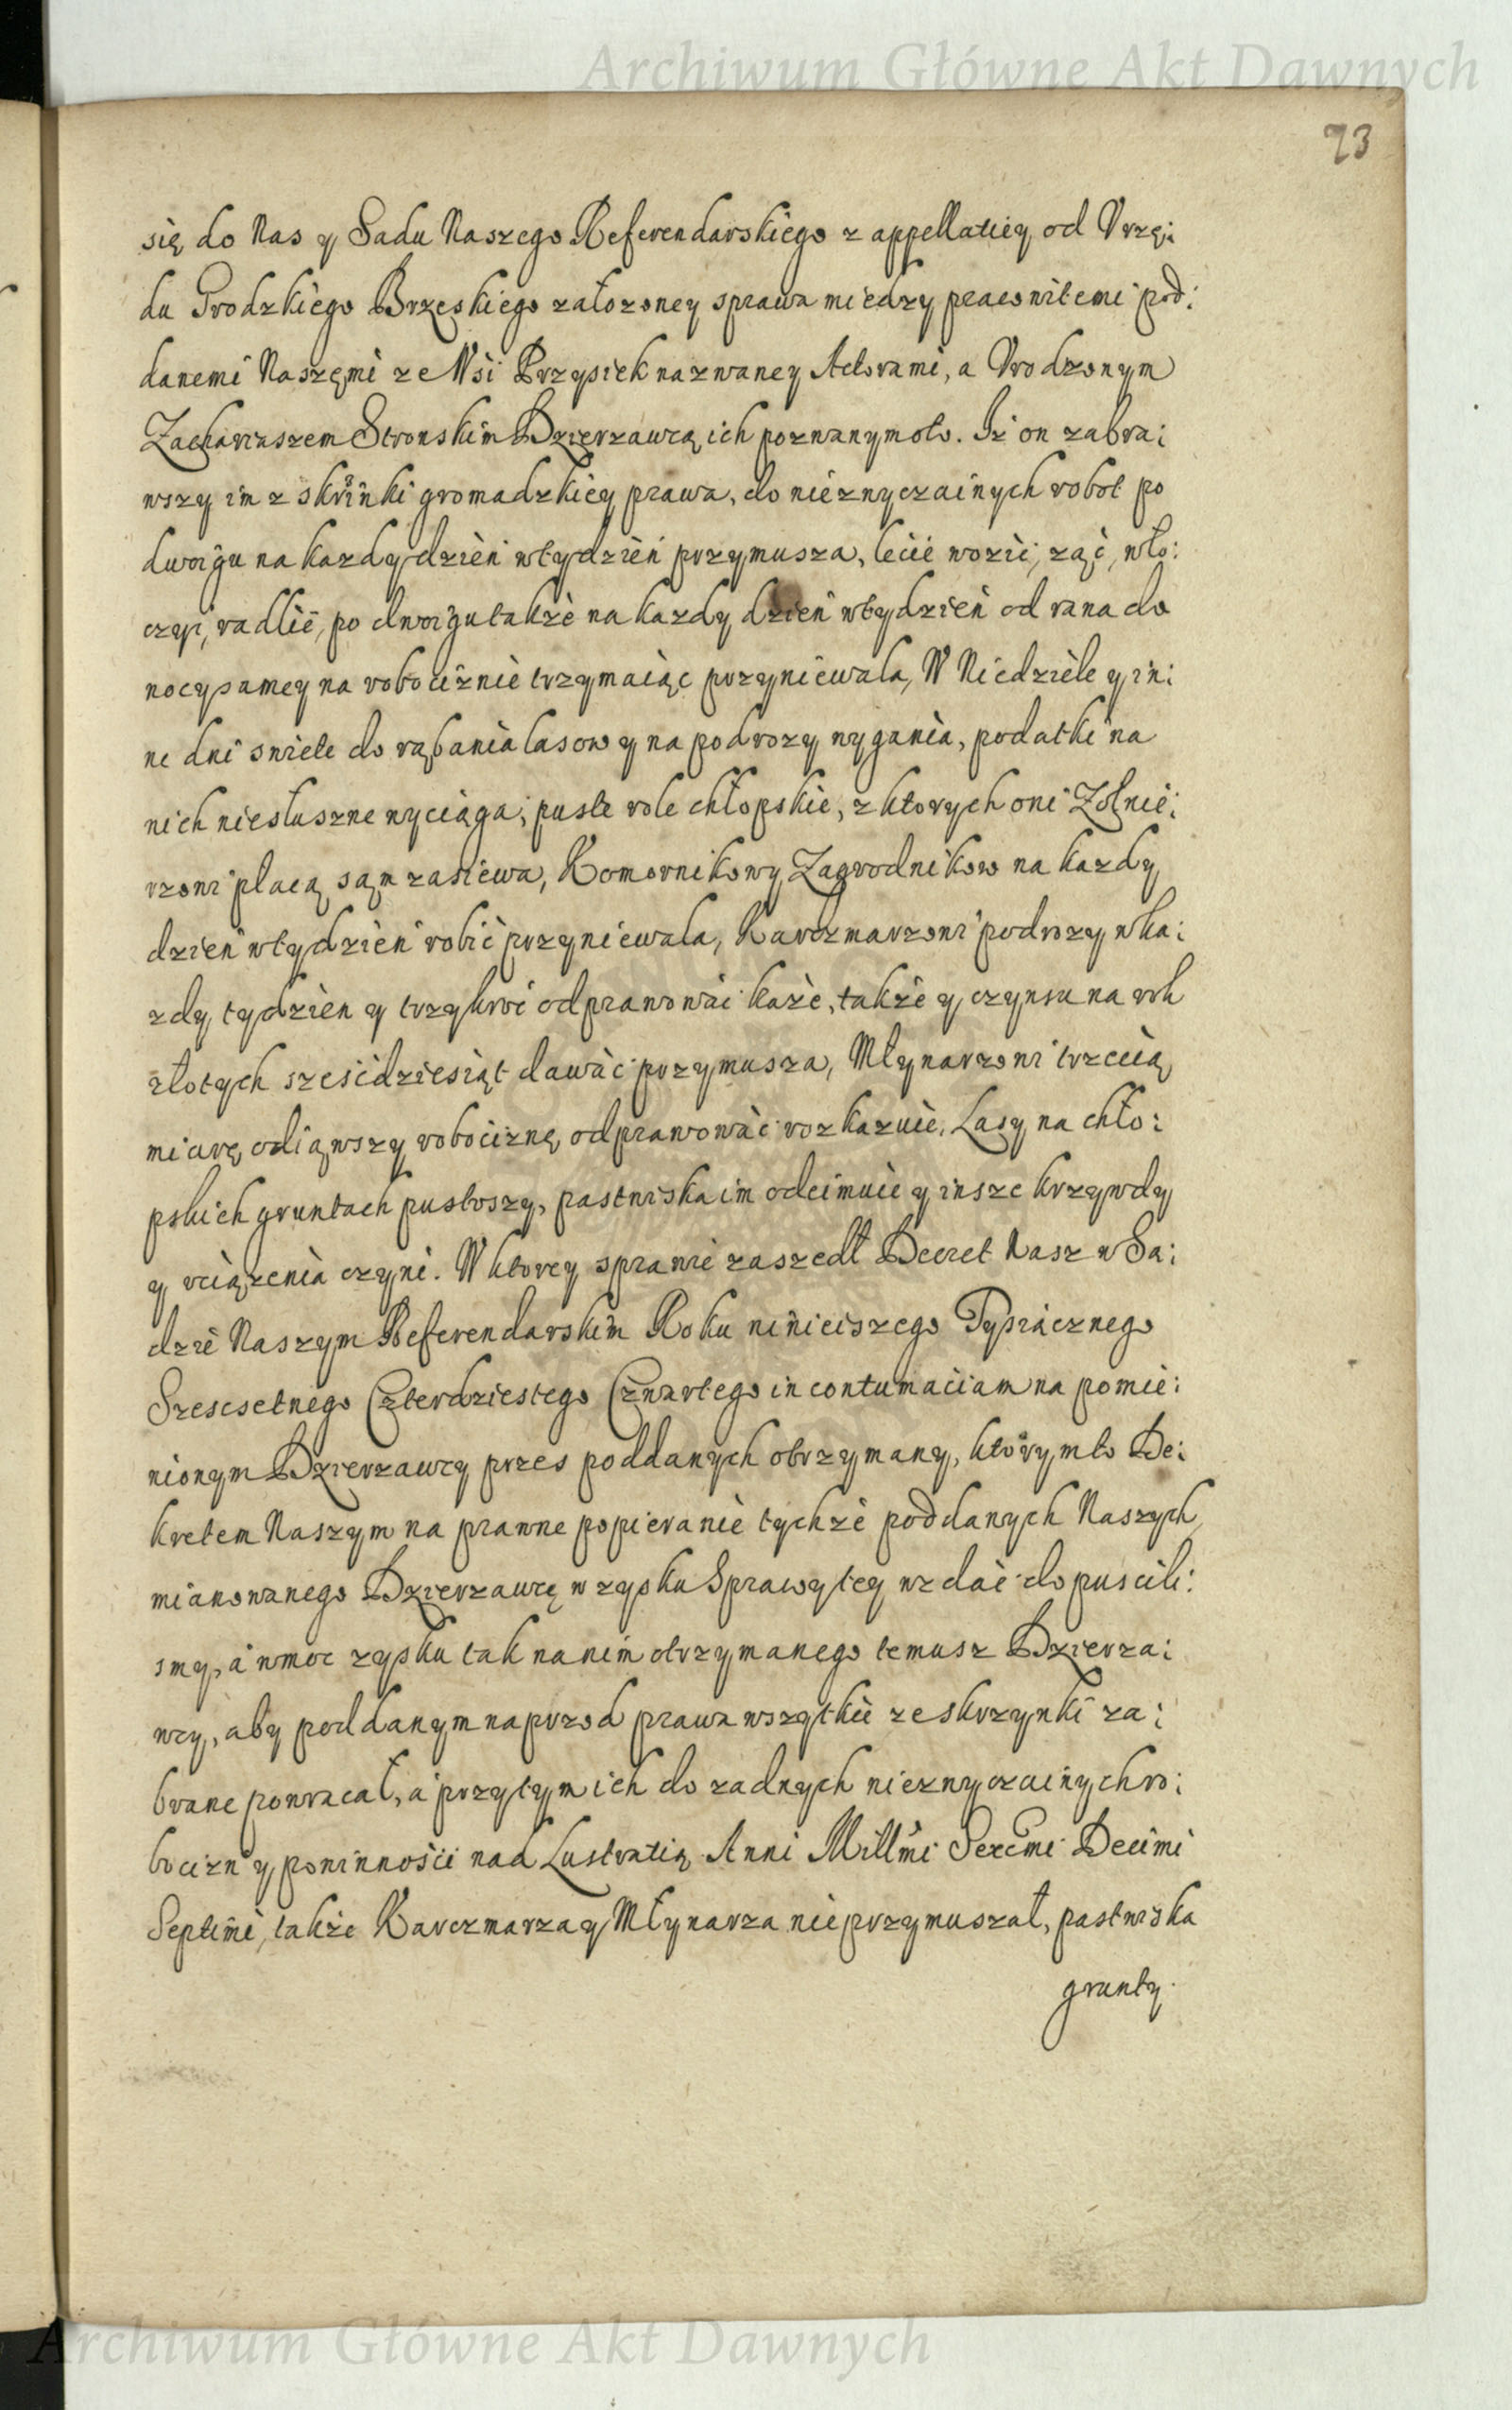 Archiwum Główne Akt Dawnych
73
się do Nas y Sadu Naszego Referendarskiego z appellatiey od Vrzę:
du Grodzkiego Brzeskiego założoney sprawa miedzy pracowitemi pod:
danemi Naszemi ze Wsi Przysiek nazwaney Actorami, a Vrodzonym
Zachariaszem Stronskim Dzierzawcą ich poznanym o to. Iż on zabra:
wszy im z skrinki gromadzkiey prawa, do niezwyczainych robot po
dwoigu na kazdy dzień w tydzień przymusza, lecie wozić, żąć, wło:
czyć, radlić, po dwoigu także na kazdy dzień w tydzień od rana do
nocy samey na robociznie trzymaiąc przyniewala, W Niedziele y in:
ne dni swiete do rąbania lasow y na podrozy wygania, podatki na
nich niesłuszne wyciąga, puste role chłopskie, z ktorych oni Zołnie:
rzowi płacą sam zasiewa, Komornikow y Zagrodnikow na kazdy
dzień w tydzień robić przyniewala, Karczmarzowi podrozy w ka:
zdy tydzien y trzykroć odprawować każe, także y czynszu na rok
złotych sześćdziesiąt dawać przymusza, Młynarzowi trzecią
miarę odiąwszy robociznę odprawować rozkazuie, Lasy na chło:
pskich gruntach pustoszy, pastwiska im odeimuie y insze krzywdy
y vciążenia czyni. W ktorey sprawie zaszedł Decret Nasz w Sa:
dzie Naszym Referendarskim Roku ninieiszego Tysiącznego
Szescsetnego Czterdziestego Czwartego in contumaciam na pomie:
nionym Dzierzawcy przes poddanych otrzymany, ktorym to De:
kretem Naszym na prawne popieranie tychże poddanych Naszych
mianowanego Dzierzawcę w zysku Sprawy tey wzdać dopuscili:
smy, a w moc zysku tak na nim otrzymanego temusz Dzierza:
wcy, aby poddanym naprzod prawa wszytkie ze skrzynki za:
brane powracał, a przytym ich do zadnych niezwyczainych ro:
bocizn y powinności nad Lustratią Anni Millmi Sexcmi Decimi
Septimi, także Karczmarza y Młynarza nie przymuszał, pastwiska
grunty
Archiwum Główne Akt Dawnych